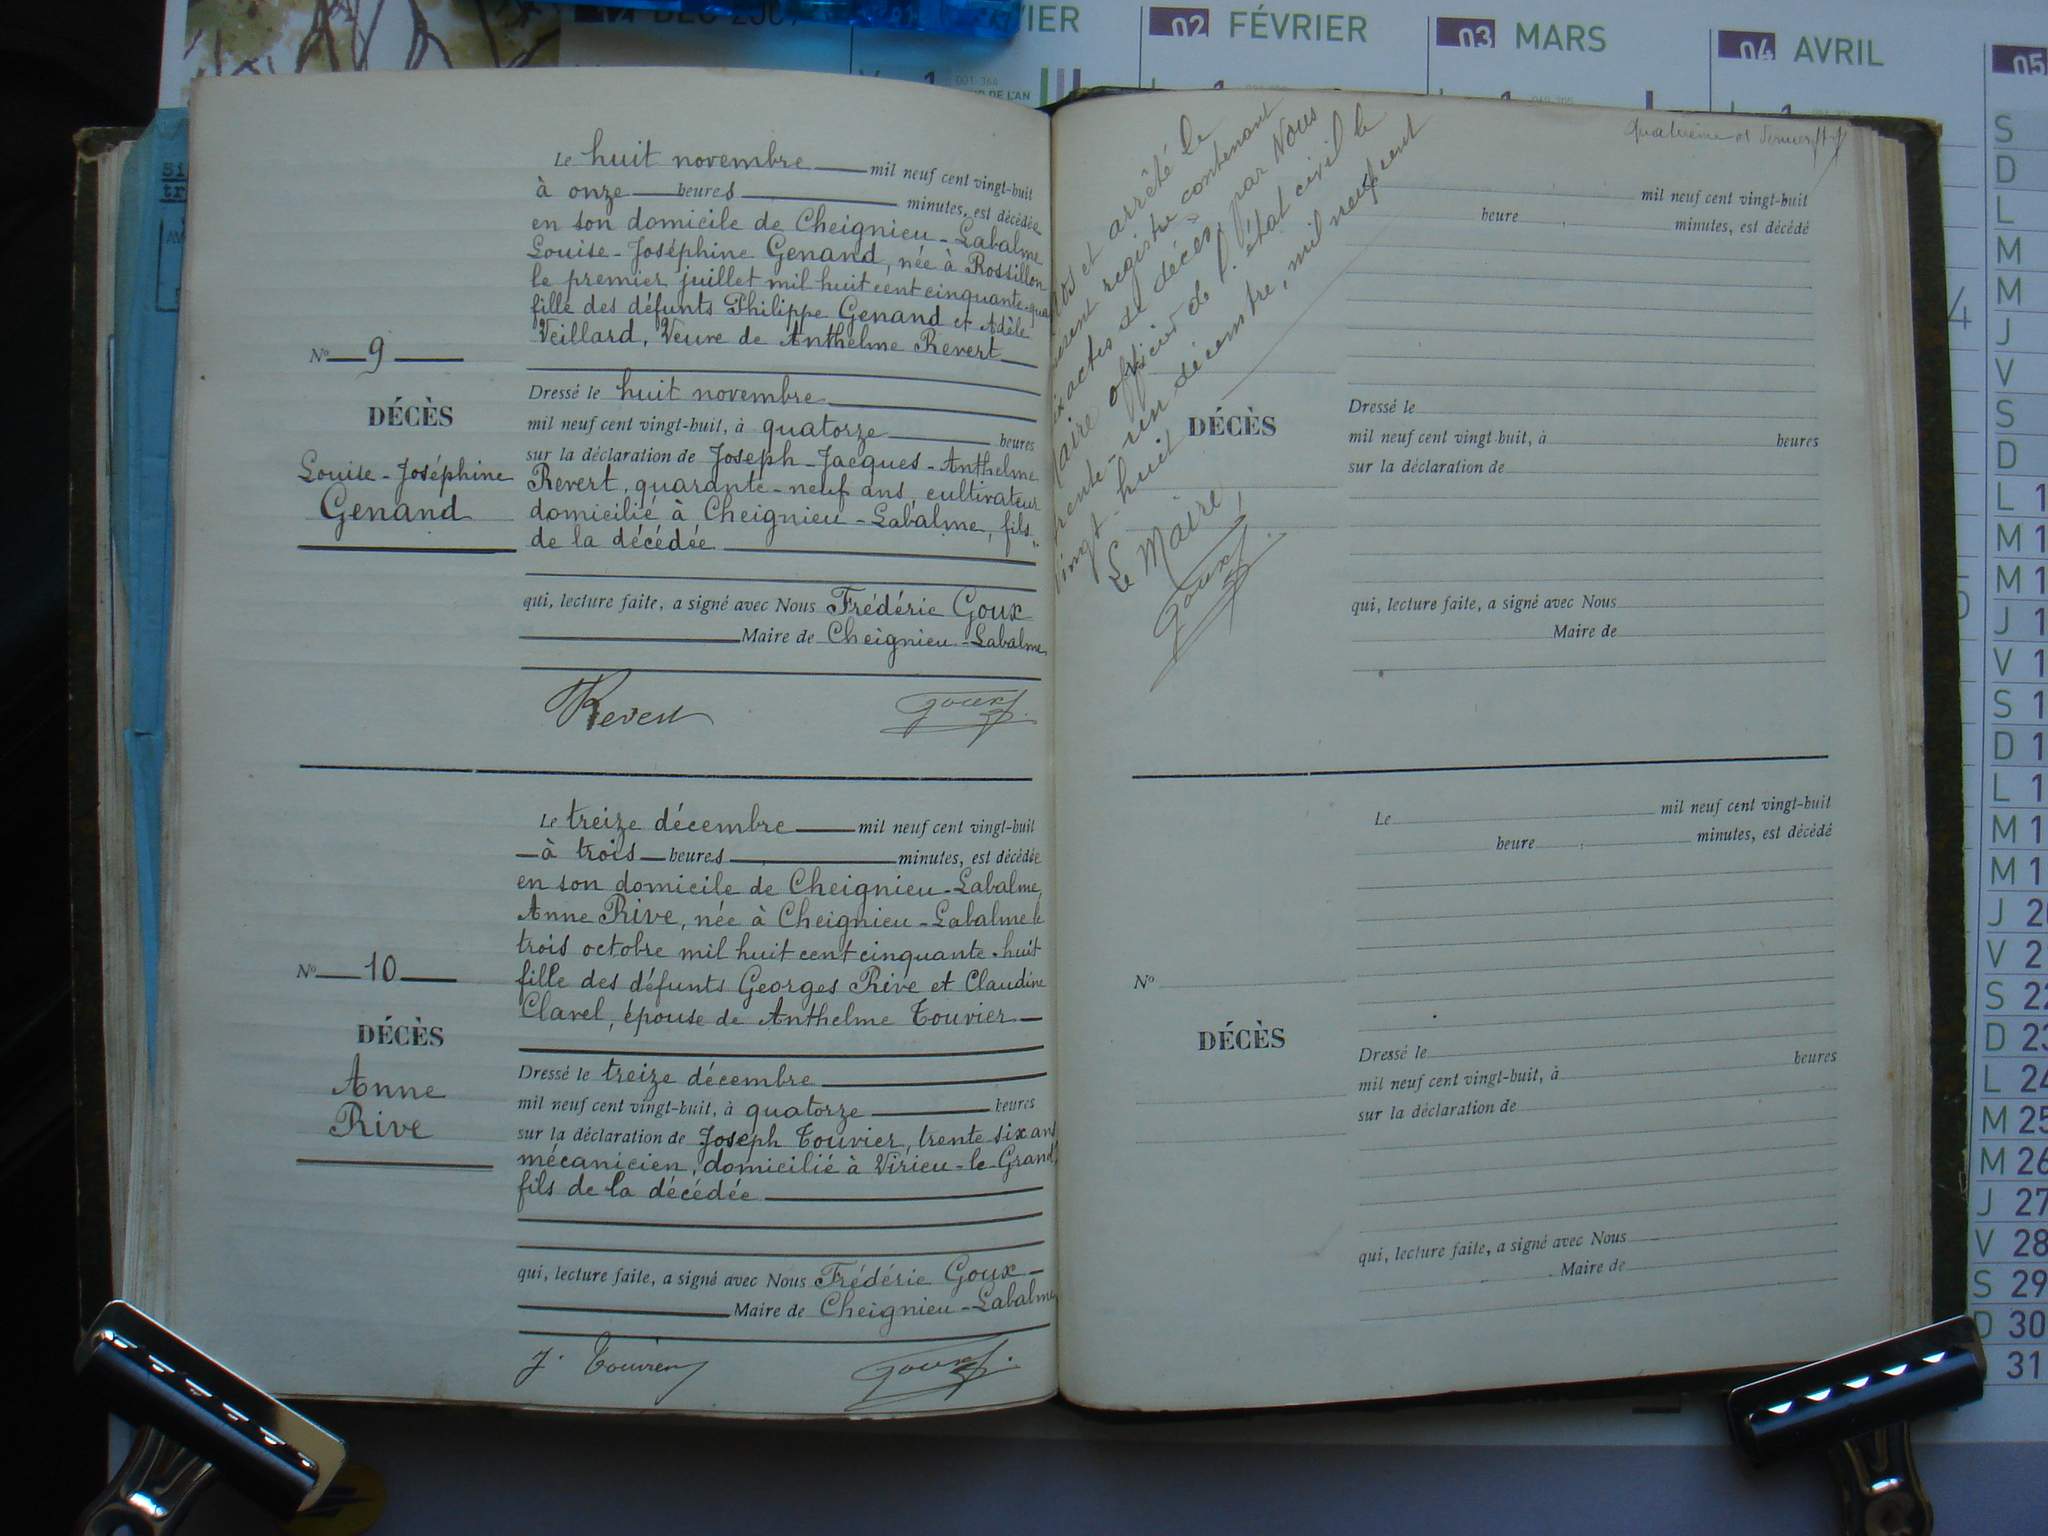 DEC 2007
VIER
02 FÉVRIER
03 MARS
04 AVRIL
05
Le huit novembre mil neuf cent vingt-huit
à onze heures minutes, est décédée
en son domicile de Cheignieu-Labalme
Louise-Joséphine Genand, née à Rossillon
le premier juillet mil huit cent cinquante-qua
fille des défunts Philippe Genand et Adèle
Veillard, Veuve de Anthelme Revert
N° 9
DÉCÈS
Louise-Joséphine
Genand
Dressé le huit novembre
mil neuf cent vingt-huit, à quatorze heures
sur la déclaration de Joseph-Jacques-Anthelme
Revert, quarante-neuf ans, cultivateur
domicilié à Cheignieu-Labalme, fils
de la décédée
qui, lecture faite, a signé avec Nous Frédéric Goux
Maire de Cheignieu-Labalme
Revert Goux
Le treize décembre mil neuf cent vingt-huit
à trois heures minutes, est décédée
en son domicile de Cheignieu-Labalme,
Anne Rive, née à Cheignieu-Labalme le
trois octobre mil huit cent cinquante-huit
fille des défunts Georges Rive et Claudine
Clavel, épouse de Anthelme Touvier
N° 10
DÉCÈS
Anne
Rive
Dressé le treize décembre
mil neuf cent vingt-huit, à quatorze heures
sur la déclaration de Joseph Touvier, trente six ans
mécanicien, domicilié à Virieu-le-Grand,
fils de la décédée
qui, lecture faite, a signé avec Nous Frédéric Goux
Maire de Cheignieu-Labalme
J. Touvier Goux
Quatrième et dernier
Clos et arrêté le
présent registre contenant
dix actes de décès, par Nous
Maire officier de l'état civil le
trente-un décembre, mil neuf cent
vingt-huit
Le Maire,
Goux
mil neuf cent vingt-huit
heure minutes, est décédé
DÉCÈS
Dressé le
mil neuf cent vingt-huit, à heures
sur la déclaration de
qui, lecture faite, a signé avec Nous
Maire de
Le mil neuf cent vingt-huit
heure minutes, est décédé
N°
DÉCÈS
Dressé le
mil neuf cent vingt-huit, à heures
sur la déclaration de
qui, lecture faite, a signé avec Nous
Maire de
S
D
L
M
M
J
V
S
D
L 1
M 1
M 1
J 1
V 1
S 1
D 1
L 1
M 1
M 1
J 20
V 2
S 22
D 23
L 24
M 25
M 26
J 27
V 28
S 29
D 30
31